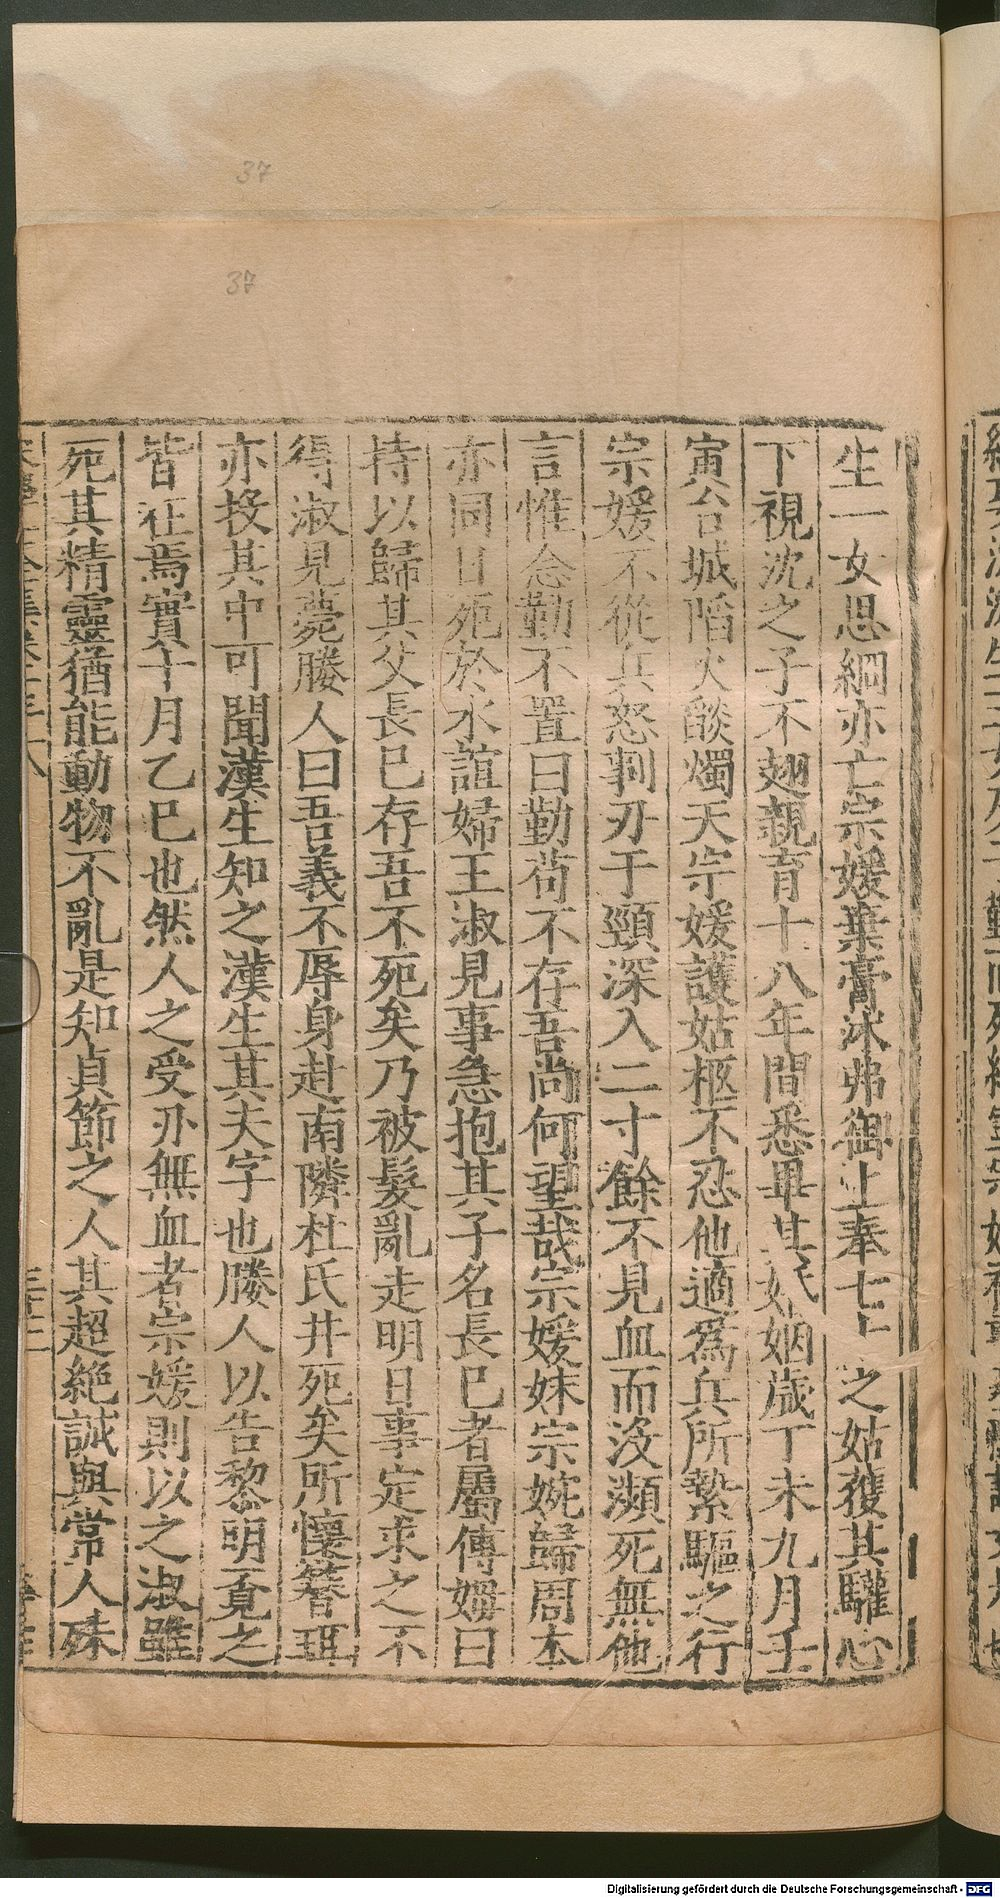 生一女思綱亦亡宗媛棄膏沐弗御上奉七十之姑獲其驩心
下視沈之子不趐親育十八年間悉畢其婚姻歲丁未九月壬
寅台城䧟火燄燭天宗媛護姑柩不忍他適為兵所縶驅之行
宗媛不從兵怒剚刃于頸深入二寸餘不見血而沒瀕死無他
言惟念勤不置曰勤苟不存吾尚何望哉宗媛妹宗婉歸周本
亦同日死於水誼婦王淑見事急抱其子名長已者屬傅姆曰
持以歸其父長已存吾不死矣乃被髮亂走明日事定求之不
得淑見薨媵人曰吾義不辱身赴南隣杜氏井死矣所懷簪珥
亦投其中可聞漢生知之漢生其夫字也媵人以告黎明覔之
皆在焉實十月乙巳也然人之受刃無血者宗媛則以之淑雖
死其精靈猶能動物不亂是知貞節之人其超絕誠與常人殊
37
37
Digitalisierung gefördert durch die Deutsche Forschungsgemeinschaft - DFG